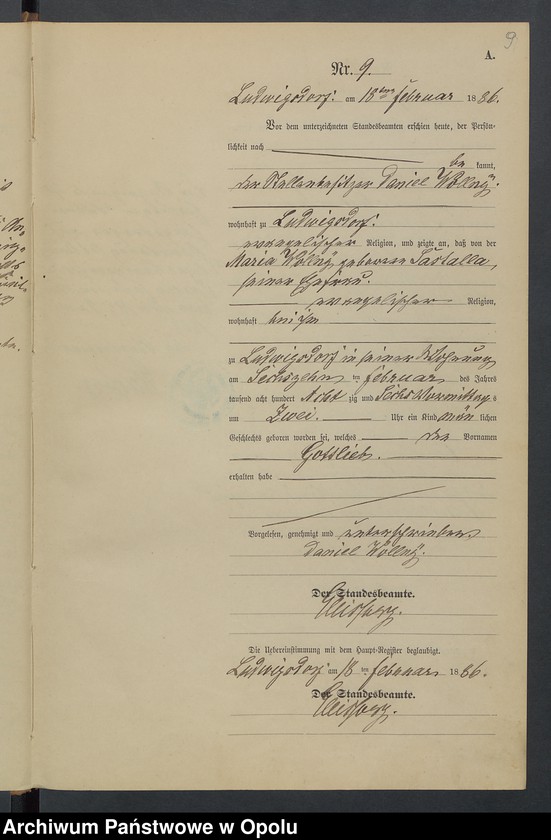 9
A.
Nr. 9.
Ludwigsdorf am 18ten Februar 1886.
Vor dem unterzeichneten Standesbeamten erschien heute, der Persön-
lichkeit nach
be kannt,
der Stellenbesitzer Daniel Wollny.
wohnhaft zu Ludwigsdorf
evangelischer Religion, und zeigte an, daß von der
Maria Wollny geborene
seiner Ehefrau.
evangelischer Religion,
wohnhaft bei ihm
zu Ludwigsdorf in seiner Wohnung
am Sechszehn ten Februar des Jahres
tausend acht hundert Acht zig und Sechs Vormittag s
um Zwei. Uhr ein Kind män lichen
Geschlechts geboren worden sei, welches den Vornamen
Gottlieb.
erhalten habe
Vorgelesen, genehmigt und unterschrieben
Daniel Wollny.
Der Standesbeamte.
Die Uebereinstimmung mit dem Haupt-Register beglaubigt.
Ludwigsdorf am 18 ten Februar 1886.
Der Standesbeamte.
Archiwum Państwowe w Opolu